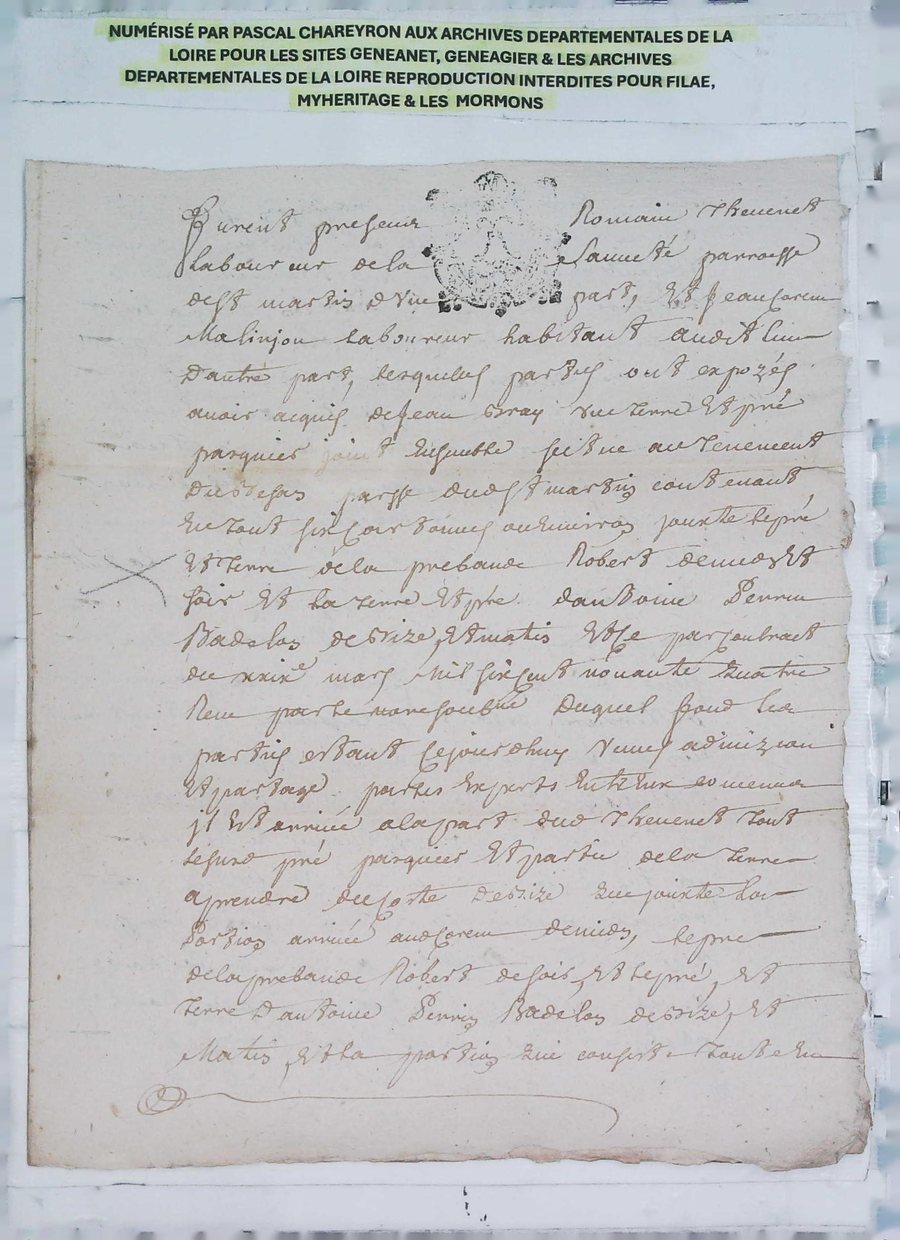 NUMÉRISÉ PAR PASCAL CHAREYRON AUX ARCHIVES DEPARTEMENTALES DE LA
LOIRE POUR LES SITES GENEANET, GENEAGIER & LES ARCHIVES
DEPARTEMENTALES DE LA LOIRE REPRODUCTION INTERDITES POUR FILAE,
MYHERITAGE & LES MORMONS
Furent presens Romain Thevenet
laboureur de la Sauveté parroesse
de St martin d'vne part, Et Jean
Malinjou laboureur habitant audit lieu
D'autre part, lesquelles parties ont expozés
avoir acquis de Jean vne Terre Et pré
pasquier joint Ensemble scitue au Tenement
parsse dud St martin contenant
En Tout six ou Environ jouxte le pré
Et Terre de la prebande Robert de midy Et
soir Et la Terre Et pré d'antoine Perrin
Badelon de bize, Et matin Et ce par contract
du xxix mars Mil six cent nonante quatre
Receu par le nore soubne Duquel fond les
parties estant Cejourdhuy venues a division
Et partage par les Experts Entr'eux convenus
jl Est arrivée a la part dud Thevenet Tout
le susd pré pasquier Et partie de la Terre
a prendre du coste De bize que jouxte la
Portion arrivée aud de midy, le pre
de la prebande Robert de soir, Et le pré, Et
Terre D'antoine Perrin Badelon de bize, Et
Matin, Et la portion qui conserte Toute En